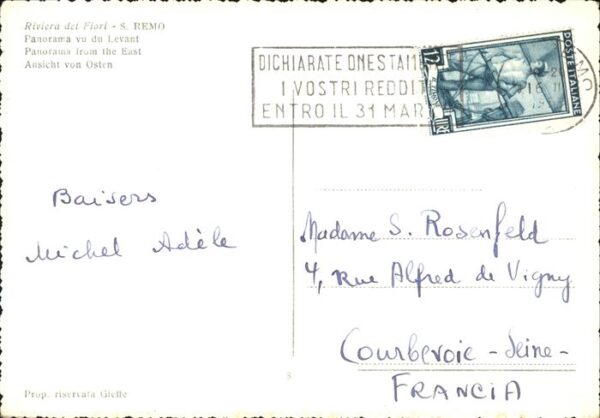 Riviera dei Fiori - S. REMO
Panorama vu du Levant
Panorama from the East
Ansicht von Osten
DICHIARATE ONESTAM
I VOSTRI REDDIT
ENTRO IL 31 MAR
POSTE ITALIANE
12
Baisers
Michel Adèle
Madame S. Rosenfeld
4, Rue Alfred de Vigny
Courbevoie - Seine -
FRANCIA
8
Prop. riservata Gieffe